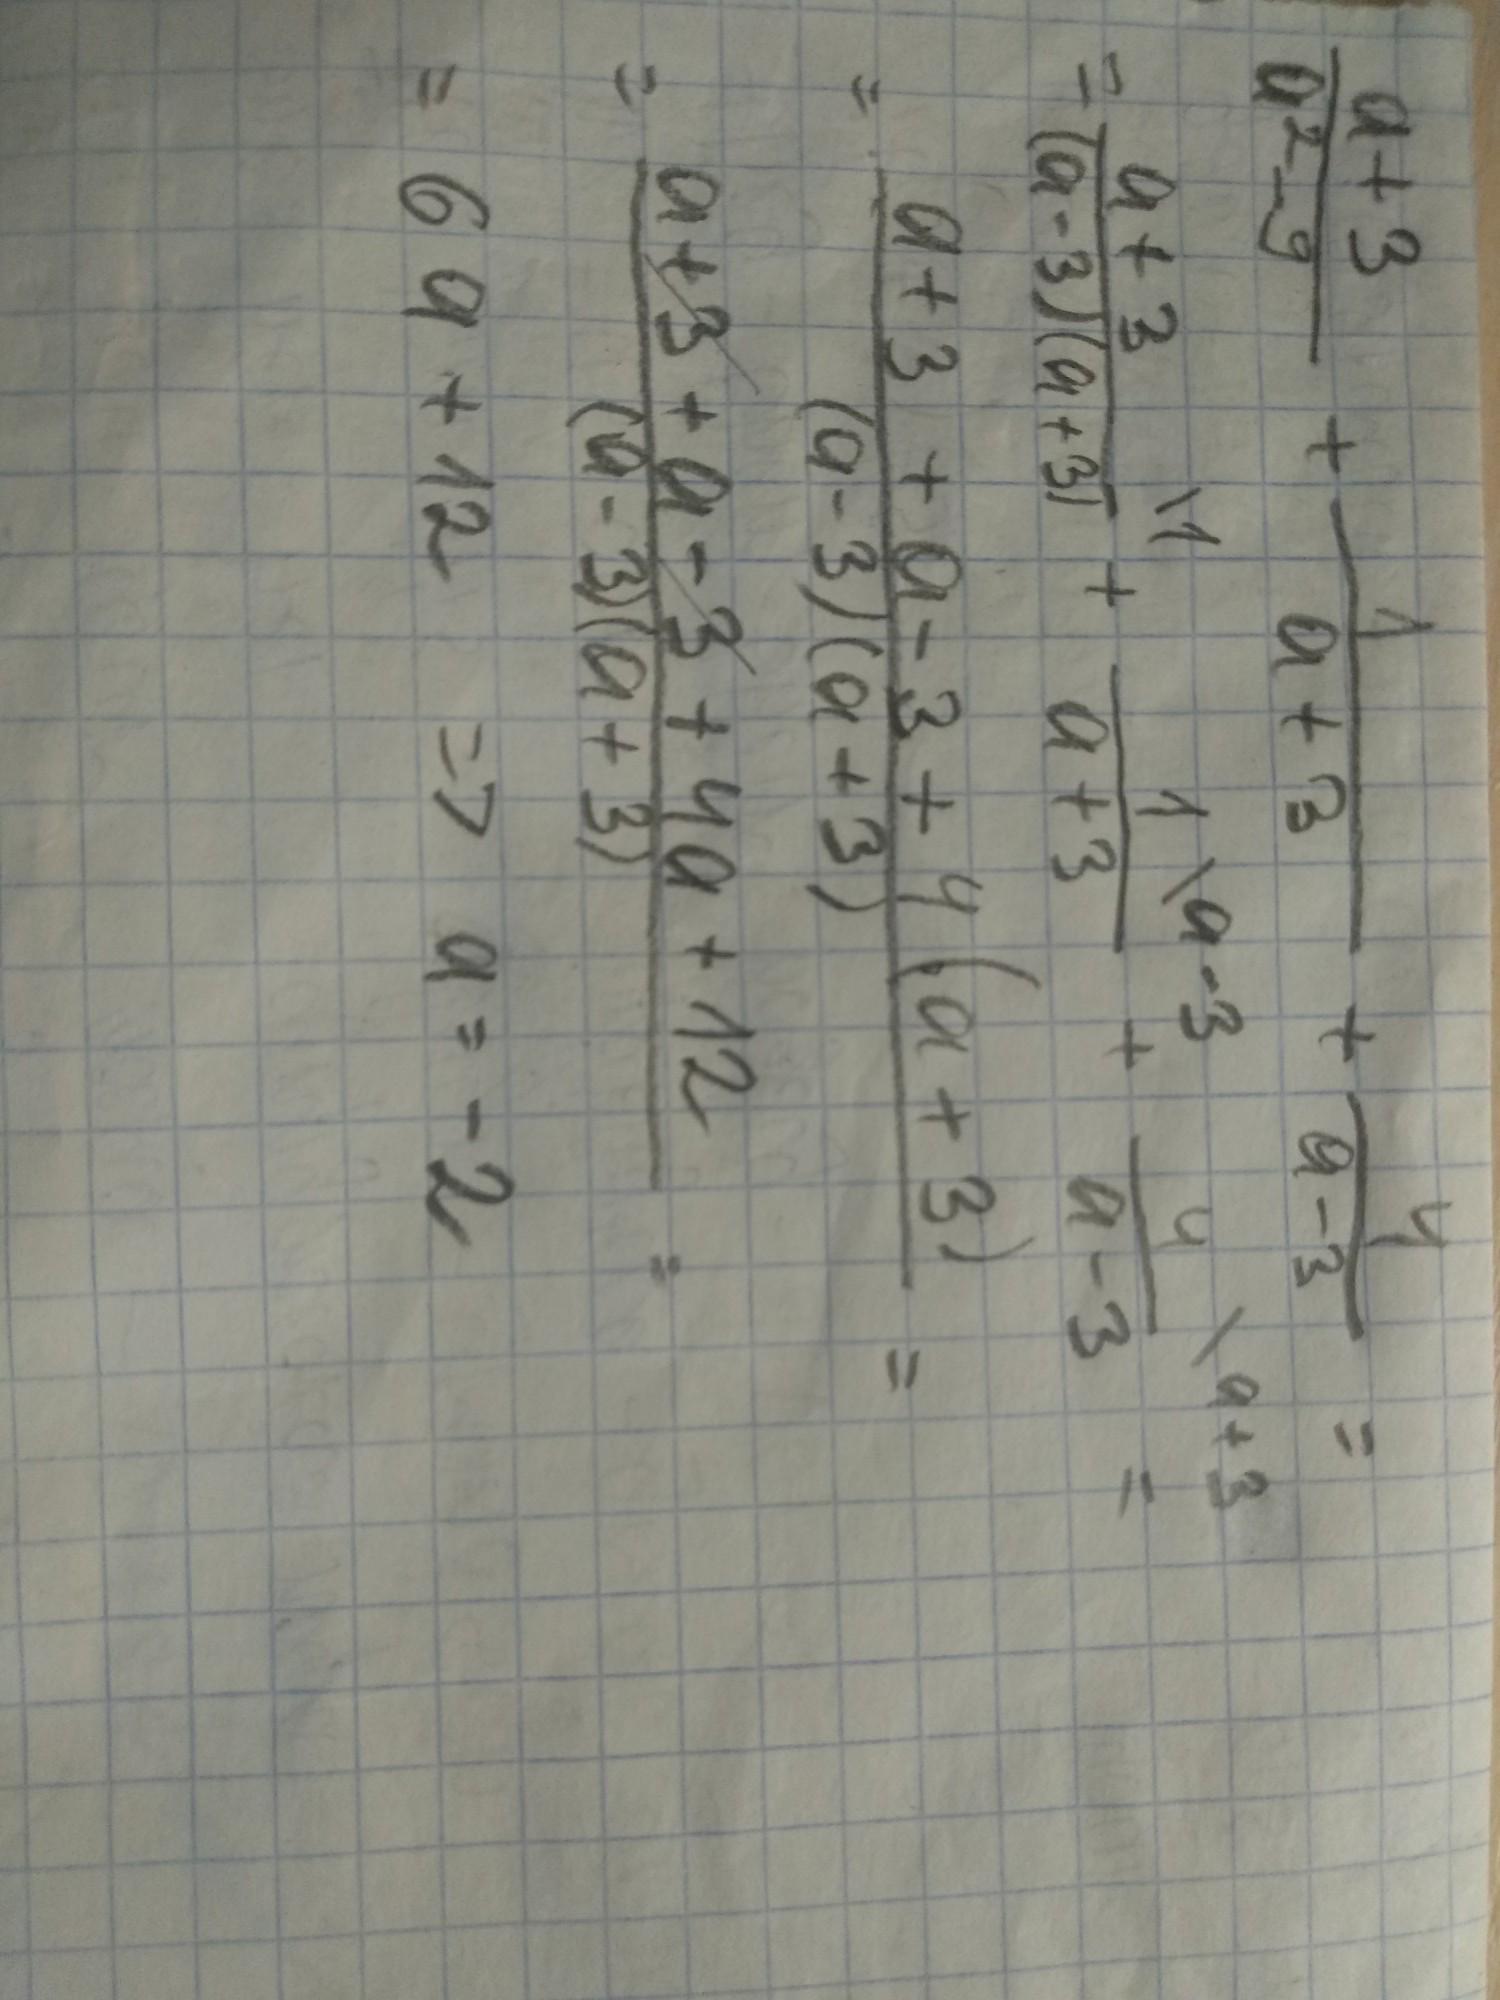 a+3/a²-9 + 1/a+3 + 4/a-3 =
= a+3/(a-3)(a+3) \1 + 1/a+3 \a-3 + 4/a-3 \a+3 =
= a+3+a-3+4(a+3)/(a-3)(a+3) =
= a+3+a-3+4a+12/(a-3)(a+3) =
= 6a+12 => a=-2